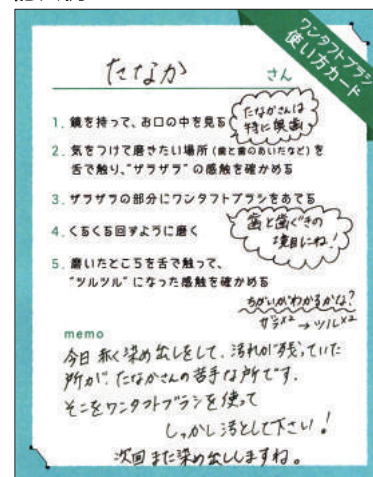 ワンタフトブラシ
使い方カード
たなか さん
1. 鏡を持って、お口の中を見る
たなかさんは
特に奥歯
2. 気をつけて磨きたい場所(歯と歯のあいだなど)を
舌で触り、"ザラザラ"の感触を確かめる
3. ザラザラの部分にワンタフトブラシをあてる
歯と歯ぐきの
境目にね!
4. くるくる回すように磨く
5. 磨いたところを舌で触って、
"ツルツル"になった感触を確かめる
ちがいがわかるかな?
ザラ×2 → ツル×2
memo
今日 赤く染め出しをして、汚れが残っていた
所が、たなかさんの苦手な所です。
そこをワンタフトブラシを使って
しっかし落として下さい!
次回また染め出ししますね。